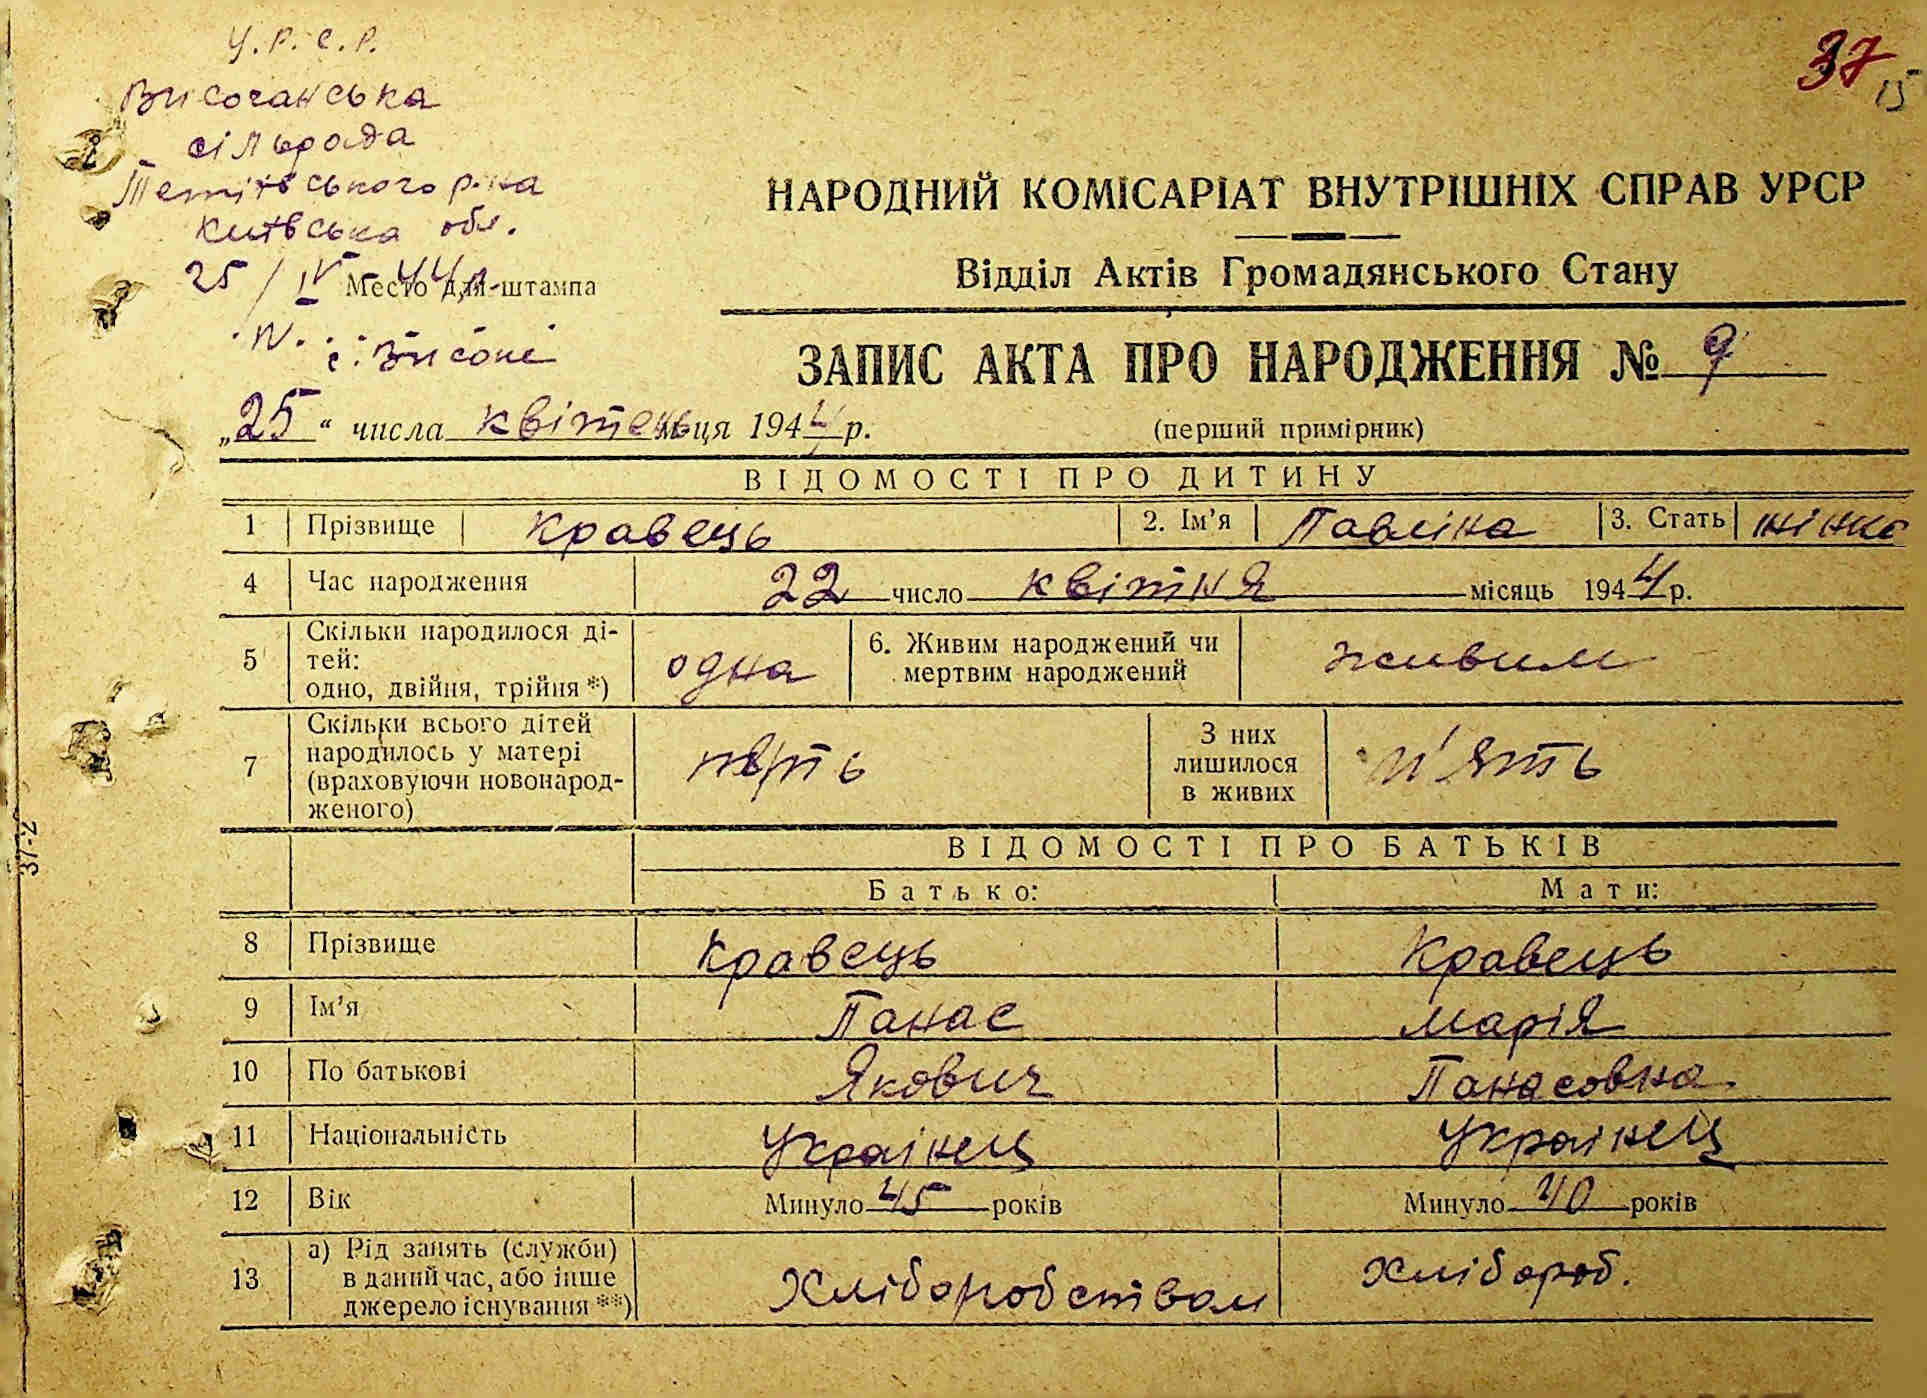 У.Р.С.Р.
37
15
Височанська
сільрада
Тетіївського р-на
Київська обл.
25/IV 44 р.
Место для штампа
с. Високе
НАРОДНИЙ КОМІСАРІАТ ВНУТРІШНІХ СПРАВ УРСР
Відділ Актів Громадянського Стану
ЗАПИС АКТА ПРО НАРОДЖЕННЯ № 9
(перший примірник)
„25“ числа квітень м-ця 1944 р.
ВІДОМОСТІ ПРО ДИТИНУ
1 Прізвище Кравець 2. Ім'я Павліна 3. Стать жінка
4 Час народження 22 число квітня місяць 1944 р.
5 Скільки народилося ді-
тей:
одно, двійня, трійня *) одна
6. Живим народжений чи
мертвим народжений живим
7 Скільки всього дітей
народилось у матері
(враховуючи новонарод-
женого)
З них
лишилося
в живих п'ять
37-2
ВІДОМОСТІ ПРО БАТЬКІВ
Батько: Мати:
8 Прізвище Кравець Кравець
9 Ім'я Панас Марія
10 По батькові Якович Панасовна
11 Національність Українец Українец
12 Вік Минуло 45 років Минуло 40 років
13 а) Рід занять (служби)
в даний час, або інше
джерело існування **) Хліборобством Хлібороб.